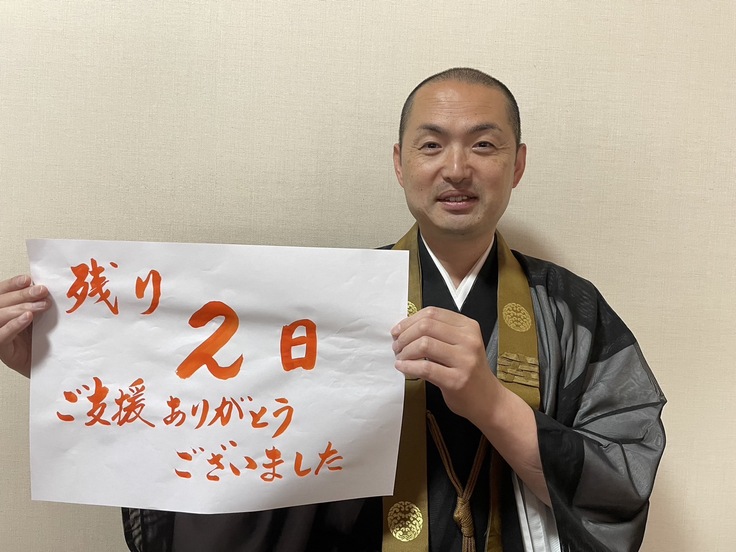 残り
2日
ご支援ありがとう
ございました